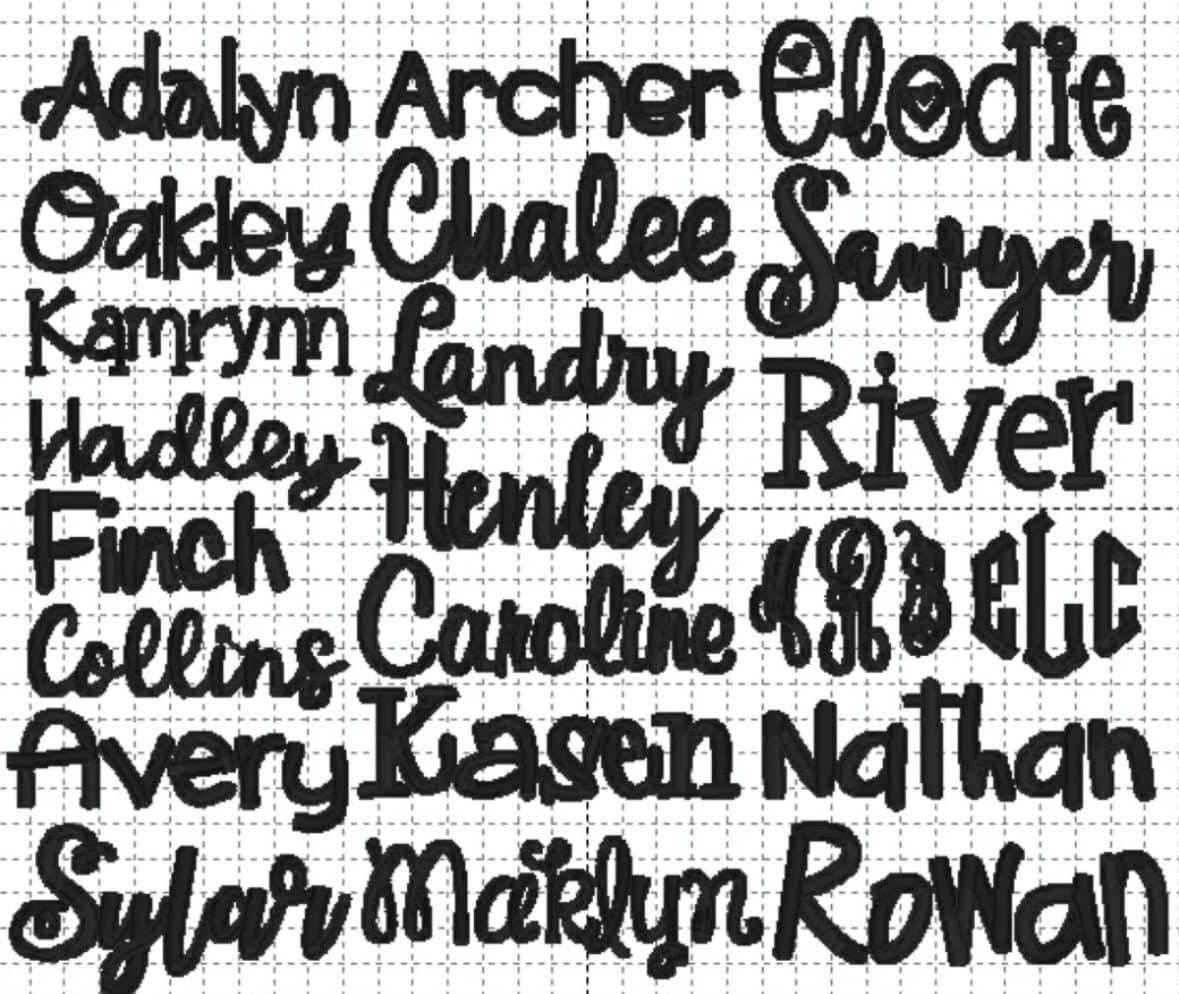 Adalyn Archer Elodie
Oakley Chalee Sawyer
Kamrynn Landry River
Hadley Henley
Finch Caroline eLC
Collins Kasen Nathan
Avery Maiklyn Rowan
Sylar